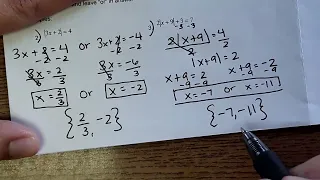 and leave "or" in answer
|3x + 2| = 4
2|x+9| + 2 = 2
3x + 2 = 4 or 3x + 2 = -4
-2 -2 -2 -2
3x = 2 3x = -6
3 3 3 3
x = 2/3 or x = -2
{2/3, -2}
2|x+9| = 4
2 2
|x+9| = 2
x+9 = 2 x+9 = -2
-9 -9 -9 -9
x = -7 or x = -11
{-7, -11}